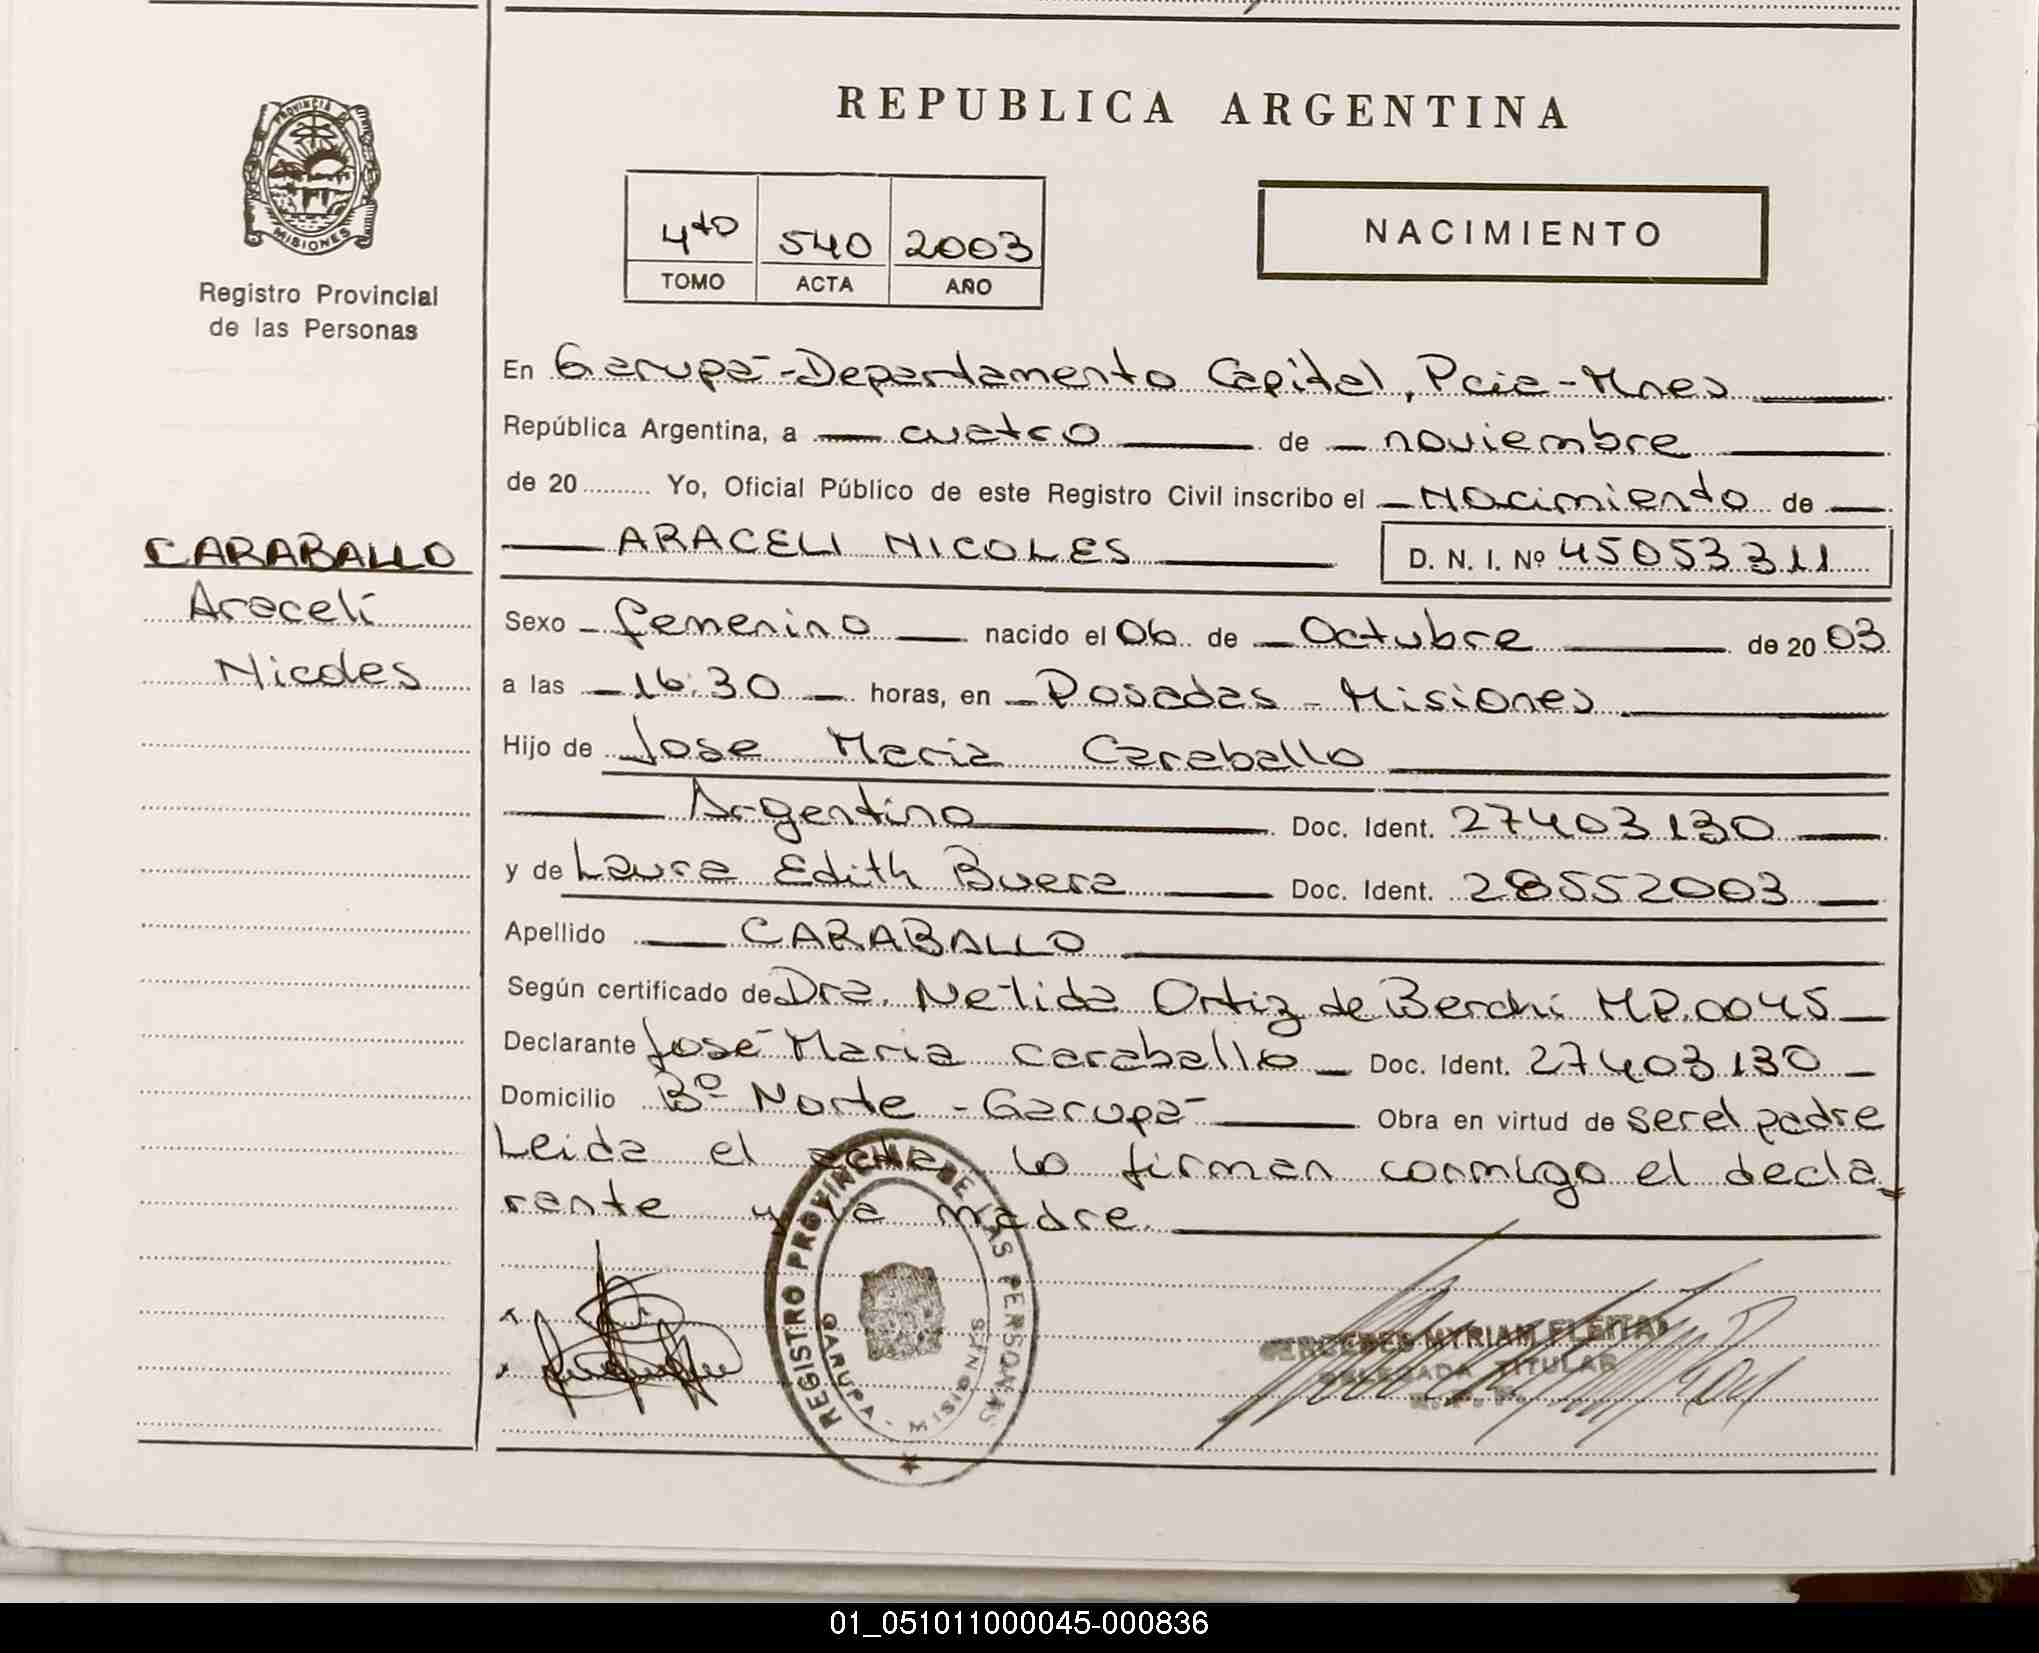 PROVINCIA DE
MISIONES
Registro Provincial
de las Personas
CARABALLO
Araceli
Nicoles
REPUBLICA ARGENTINA
4to 540 2003
TOMO ACTA AÑO
NACIMIENTO
En Garupá - Departamento Capital, Pcia - Mnes
República Argentina, a cuatro de noviembre
de 20.......... Yo, Oficial Público de este Registro Civil inscribo el Nacimiento de
ARACELI NICOLES D. N. I. Nº 45053311
Sexo femenino nacido el 06 de Octubre de 20 03
a las 16:30 horas, en Posadas - Misiones
Hijo de Jose Maria Caraballo
Argentino Doc. Ident. 27403130
y de Laura Edith Buera Doc. Ident. 28552003
Apellido CARABALLO
Según certificado de Dra. Nelida Ortiz de Berchi MP.0045
Declarante José Maria Caraballo Doc. Ident. 27403130
Domicilio Bº Norte - Garupá Obra en virtud de ser el padre
Leida el acta, lo firman conmigo el decla-
rante y la madre.
REGISTRO PROVINCIAL DE LAS PERSONAS
GARUPA - MISIONES
MERCEDES MYRIAM FLEITAS
DELEGADA TITULAR
01_051011000045-000836